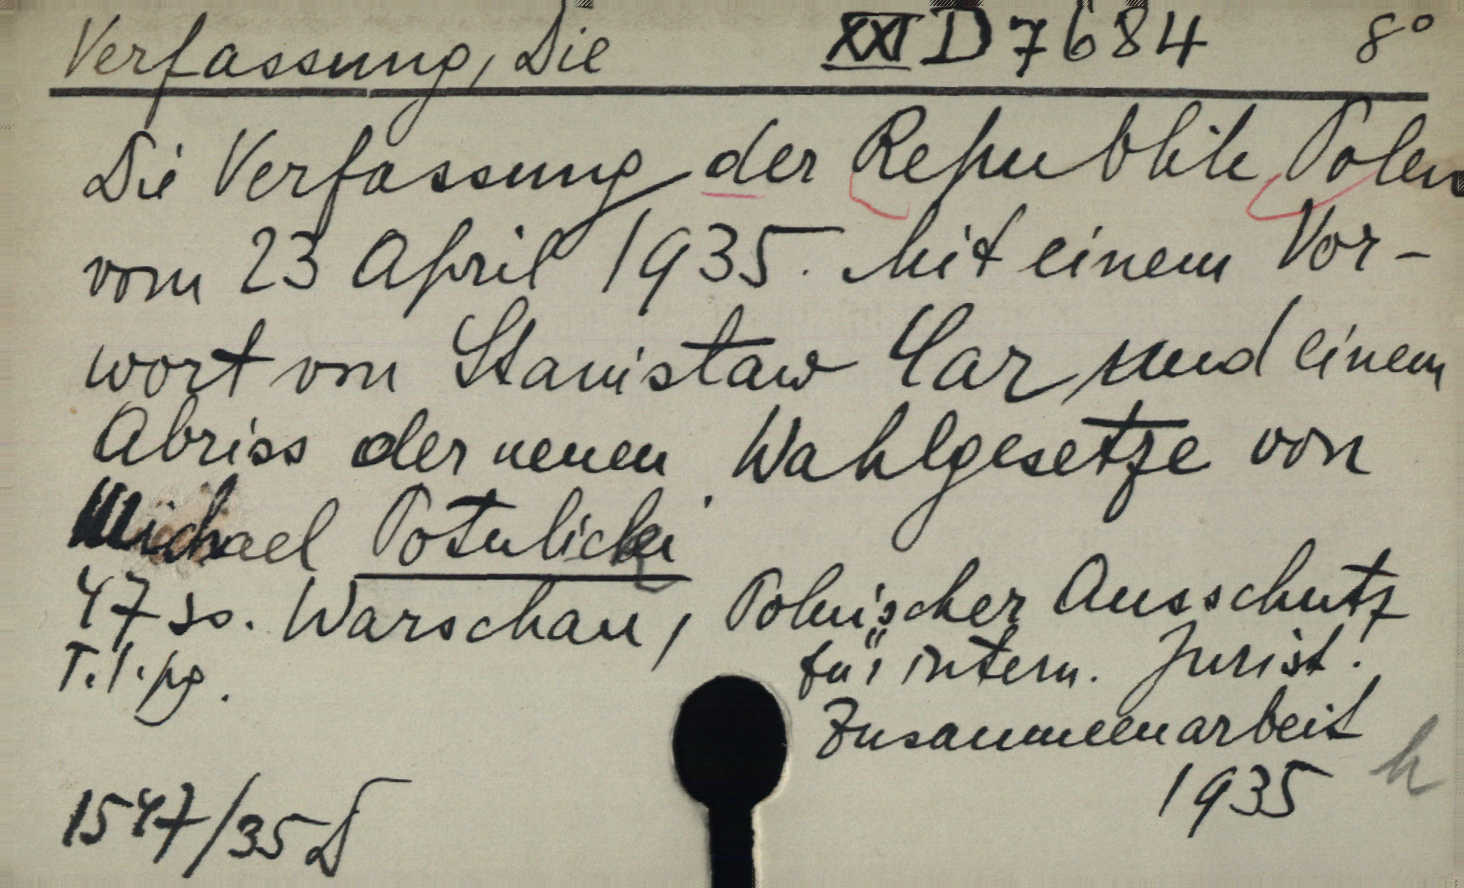 Verfassung, Die XXI D 7684 8°
Die Verfassung der Republik Polen
vom 23 April 1935. Mit einem Vor-
wort von Stanisław Car und einem
Abriss der neuen Wahlgesetze von
Michael Potulicki
47 ss. Warschau, Polnischer Ausschutz
T.1.pg. für intern. Jurist.
Zusammenarbeit
1935 h
1547/35 D